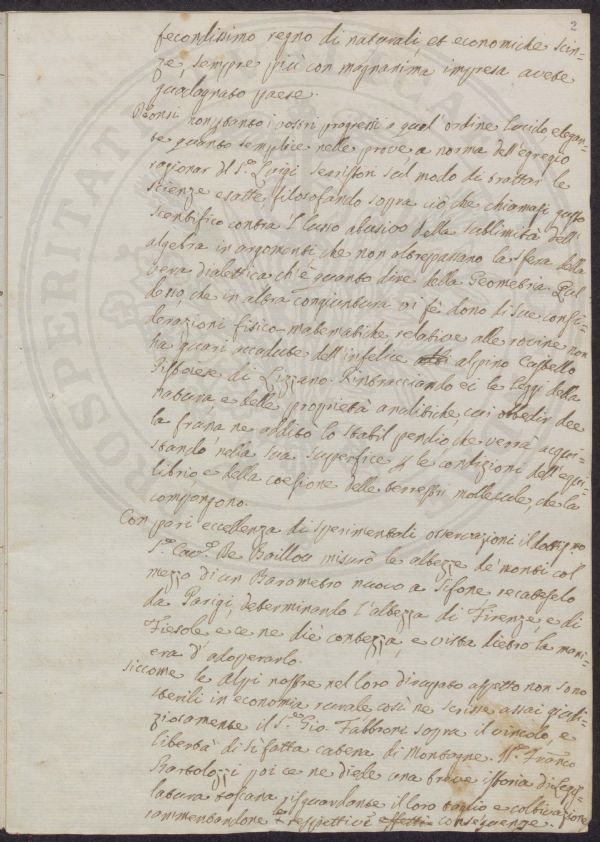 2
fecondissimo regno di naturali, et economiche scien-
ze, sempre più con magnanima impresa avete
guadagnato paese.
non stanno i vostri progressi a qual' ordine lucido elegan-
te quanto semplice nelle prove a norma dell'egregio
razionar del Sr. Luigi Serristori sul modo di trattar le
scienze esatte, filosofando sopra ciò che chiamasi gusto
scentifico contra 'l lusso abusivo della sublimità dell'
algebra in argomenti, che non oltrepassano la sfera della
vera dialettica ch'è quanto dire della Geometria. Egl'
desso che in altra congiuntura vi fè dono di sue consi-
derazioni fisico-matematiche relative alle rovine non
ha guari accadute dell'infelice alpino Castello
Pistoiese di Lizzano. Rintracciando ei le leggi della
natura, e delle proprietà analitiche, cui obbedir dee
la frana, ne additò lo stabil pendio, che verrà acqui-
stando nella sua superfice p le condizioni dell'equi-
librio e della coesione delle terrestri mollecule, che la
compongono.
Con pari eccellenza di sperimentali osservazioni il
Sr. Cavr. De Baillou misurò le altezze de' monti col
mezzo di un Barometro nuovo a Sifone recatoselo
da Parigi, determinando l'altezza di Firenze, e di
Fiesole e ce ne diè contezza, e vista dietro la mani-
era d'adoperarlo.
Siccome le Alpi nostre nel loro dirupato aspetto non sono
sterili in economia rurale così ne scrisse assai giudi-
ziosamente il Sr. Gio. Fabbroni sopra il vincolo, e
libertà di sì fatta catena di Montagne. Il Sr. Franco
Bartolozzi poi ce ne diede una breve istoria di Legi-
latura toscana risguardante il loro taglio e coltivazione
rammentandone le respettive conseguenze.